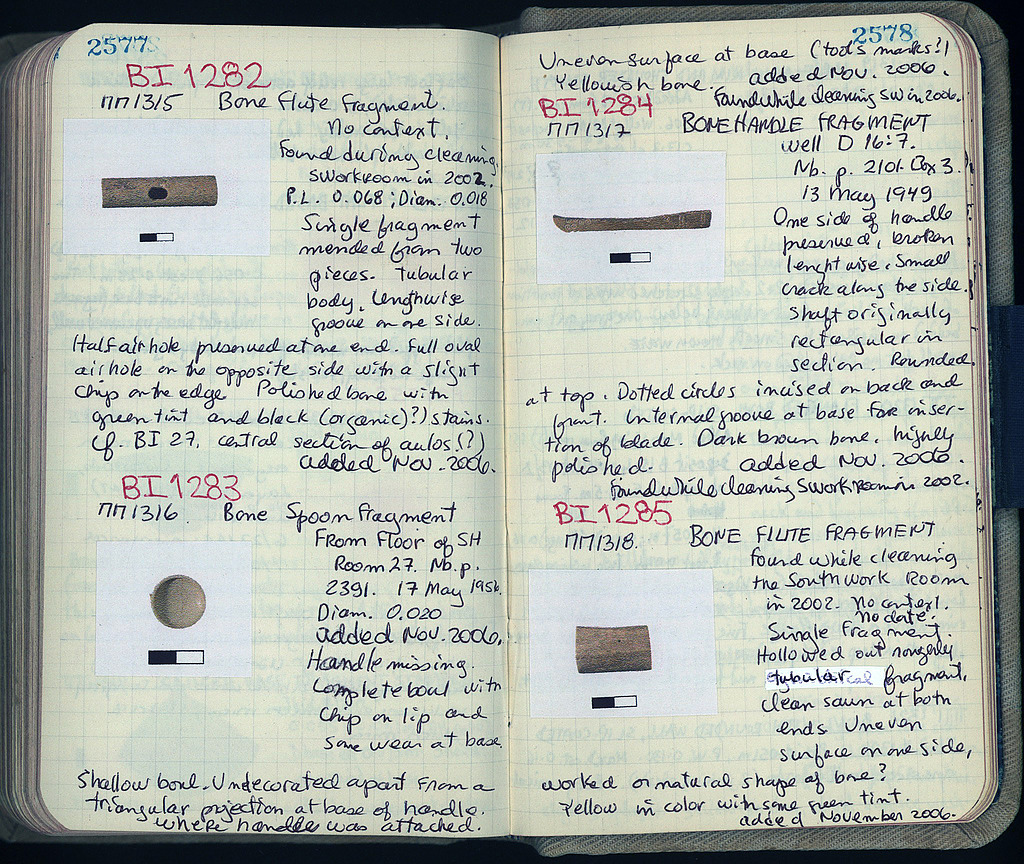 2577
BI 1282
ΠΠ1315 Bone Flute fragment.
No context.
Found during cleaning
SWorkroom in 2002.
P.L. 0.068; Diam. 0.018
Single fragment
mended from two
pieces. Tubular
body, lengthwise
groove on one side.
Half airhole preserved at one end. Full oval
airhole on the opposite side with a slight
chip on the edge. Polished bone with
green tint and black (organic)?) stains.
Cf. BI 27, central section of aulos(?)
added Nov. 2006.
BI 1283
ΠΠ1316. Bone Spoon fragment
From Floor of SH
Room 27. Nb. p.
2391. 17 May 1956.
Diam. 0.020
added Nov. 2006.
Handle missing.
Complete bowl with
chip on lip and
some wear at base.
Shallow bowl. Undecorated apart from a
triangular projection at base of handle.
where handle was attached.
2578
Uneven surface at base (tools marks?)
Yellowish bone. added Nov. 2006.
Found while cleaning SW in 2006.
BI 1284
ΠΠ1317 BONE HANDLE FRAGMENT
well D 16:7.
Nb. p. 2101. Box 3.
13 May 1949
One side of handle
preserved, broken
lenghtwise. Small
crack along the side.
Shaft originally
rectangular in
section. Rounded
at top. Dotted circles incised on back and
front. Internal groove at base for inser-
tion of blade. Dark brown bone, highly
polished. added Nov. 2006.
Found while cleaning SWorkroom in 2002.
BI 1285
ΠΠ1318. BONE FLUTE FRAGMENT
Found while cleaning
the South Work Room
in 2002. No context.
No date.
Single fragment.
Hollowed out roughly
tubular fragment,
clean sawn at both
ends Uneven
surface on one side,
worked or natural shape of bone?
Yellow in color with some green tint.
added November 2006.